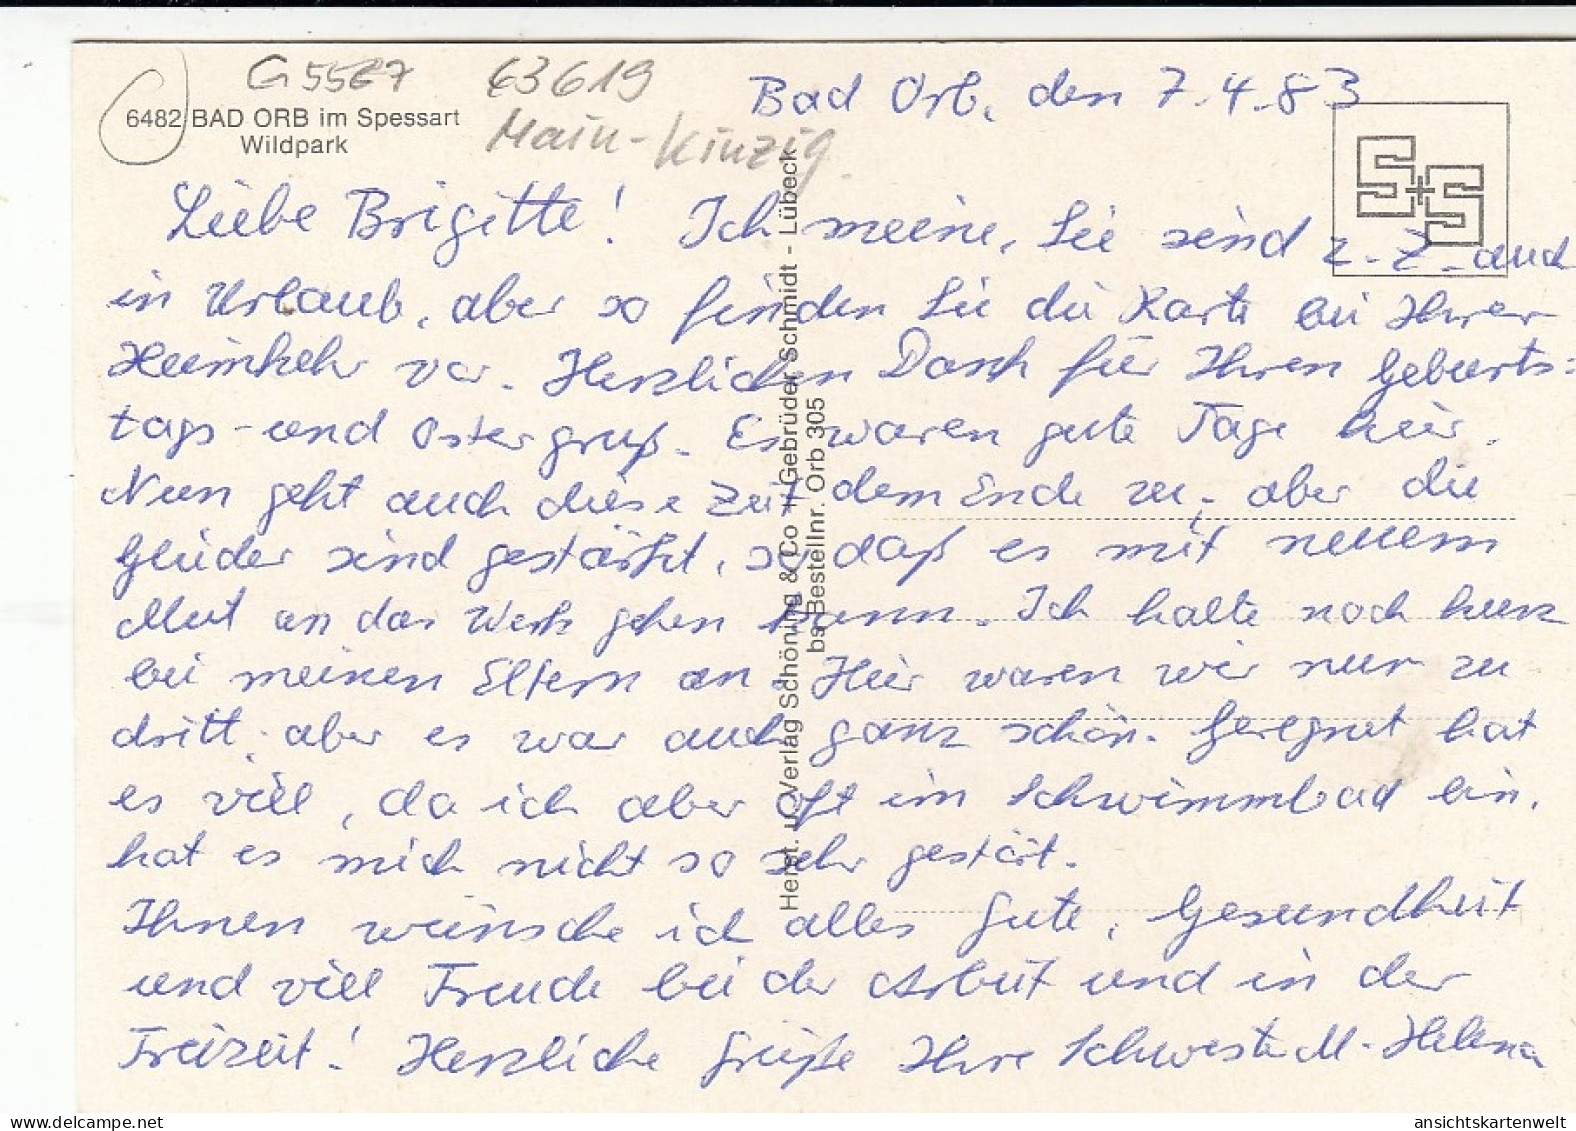 G 5527 63619
6482 BAD ORB im Spessart
Wildpark
Main-Kinzig
Bad Orb, den 7.4.83
S+S
Liebe Brigitte! Ich meine, Sie sind z.Z. auch
in Urlaub, aber so finden Sie die Karte bei Ihrer
Heimkehr vor. Herzlichen Dank für Ihren Geburts=
tags- und Ostergruß. Es waren gute Tage hier.
Nun geht auch diese Zeit dem Ende zu, aber die
Glieder sind gestärkt, so daß es mit neuem
Mut an das Werk gehen kann. Ich halte noch kurz
bei meinen Eltern an. Hier waren wir nur zu
dritt, aber es war auch ganz schön. Geregnet hat
es viel, da ich aber oft im Schwimmbad bin,
hat es mich nicht so sehr gestört.
Ihnen wünsche ich alles Gute, Gesundheit
und viel Freude bei der Arbeit und in der
Freizeit! Herzliche Grüße Ihre Schwester M. Helena
Herst. u. Verlag Schöning & Co + Gebrüder Schmidt - Lübeck
bs Bestellnr. Orb 305
de.delcampe.net
ansichtskartenwelt